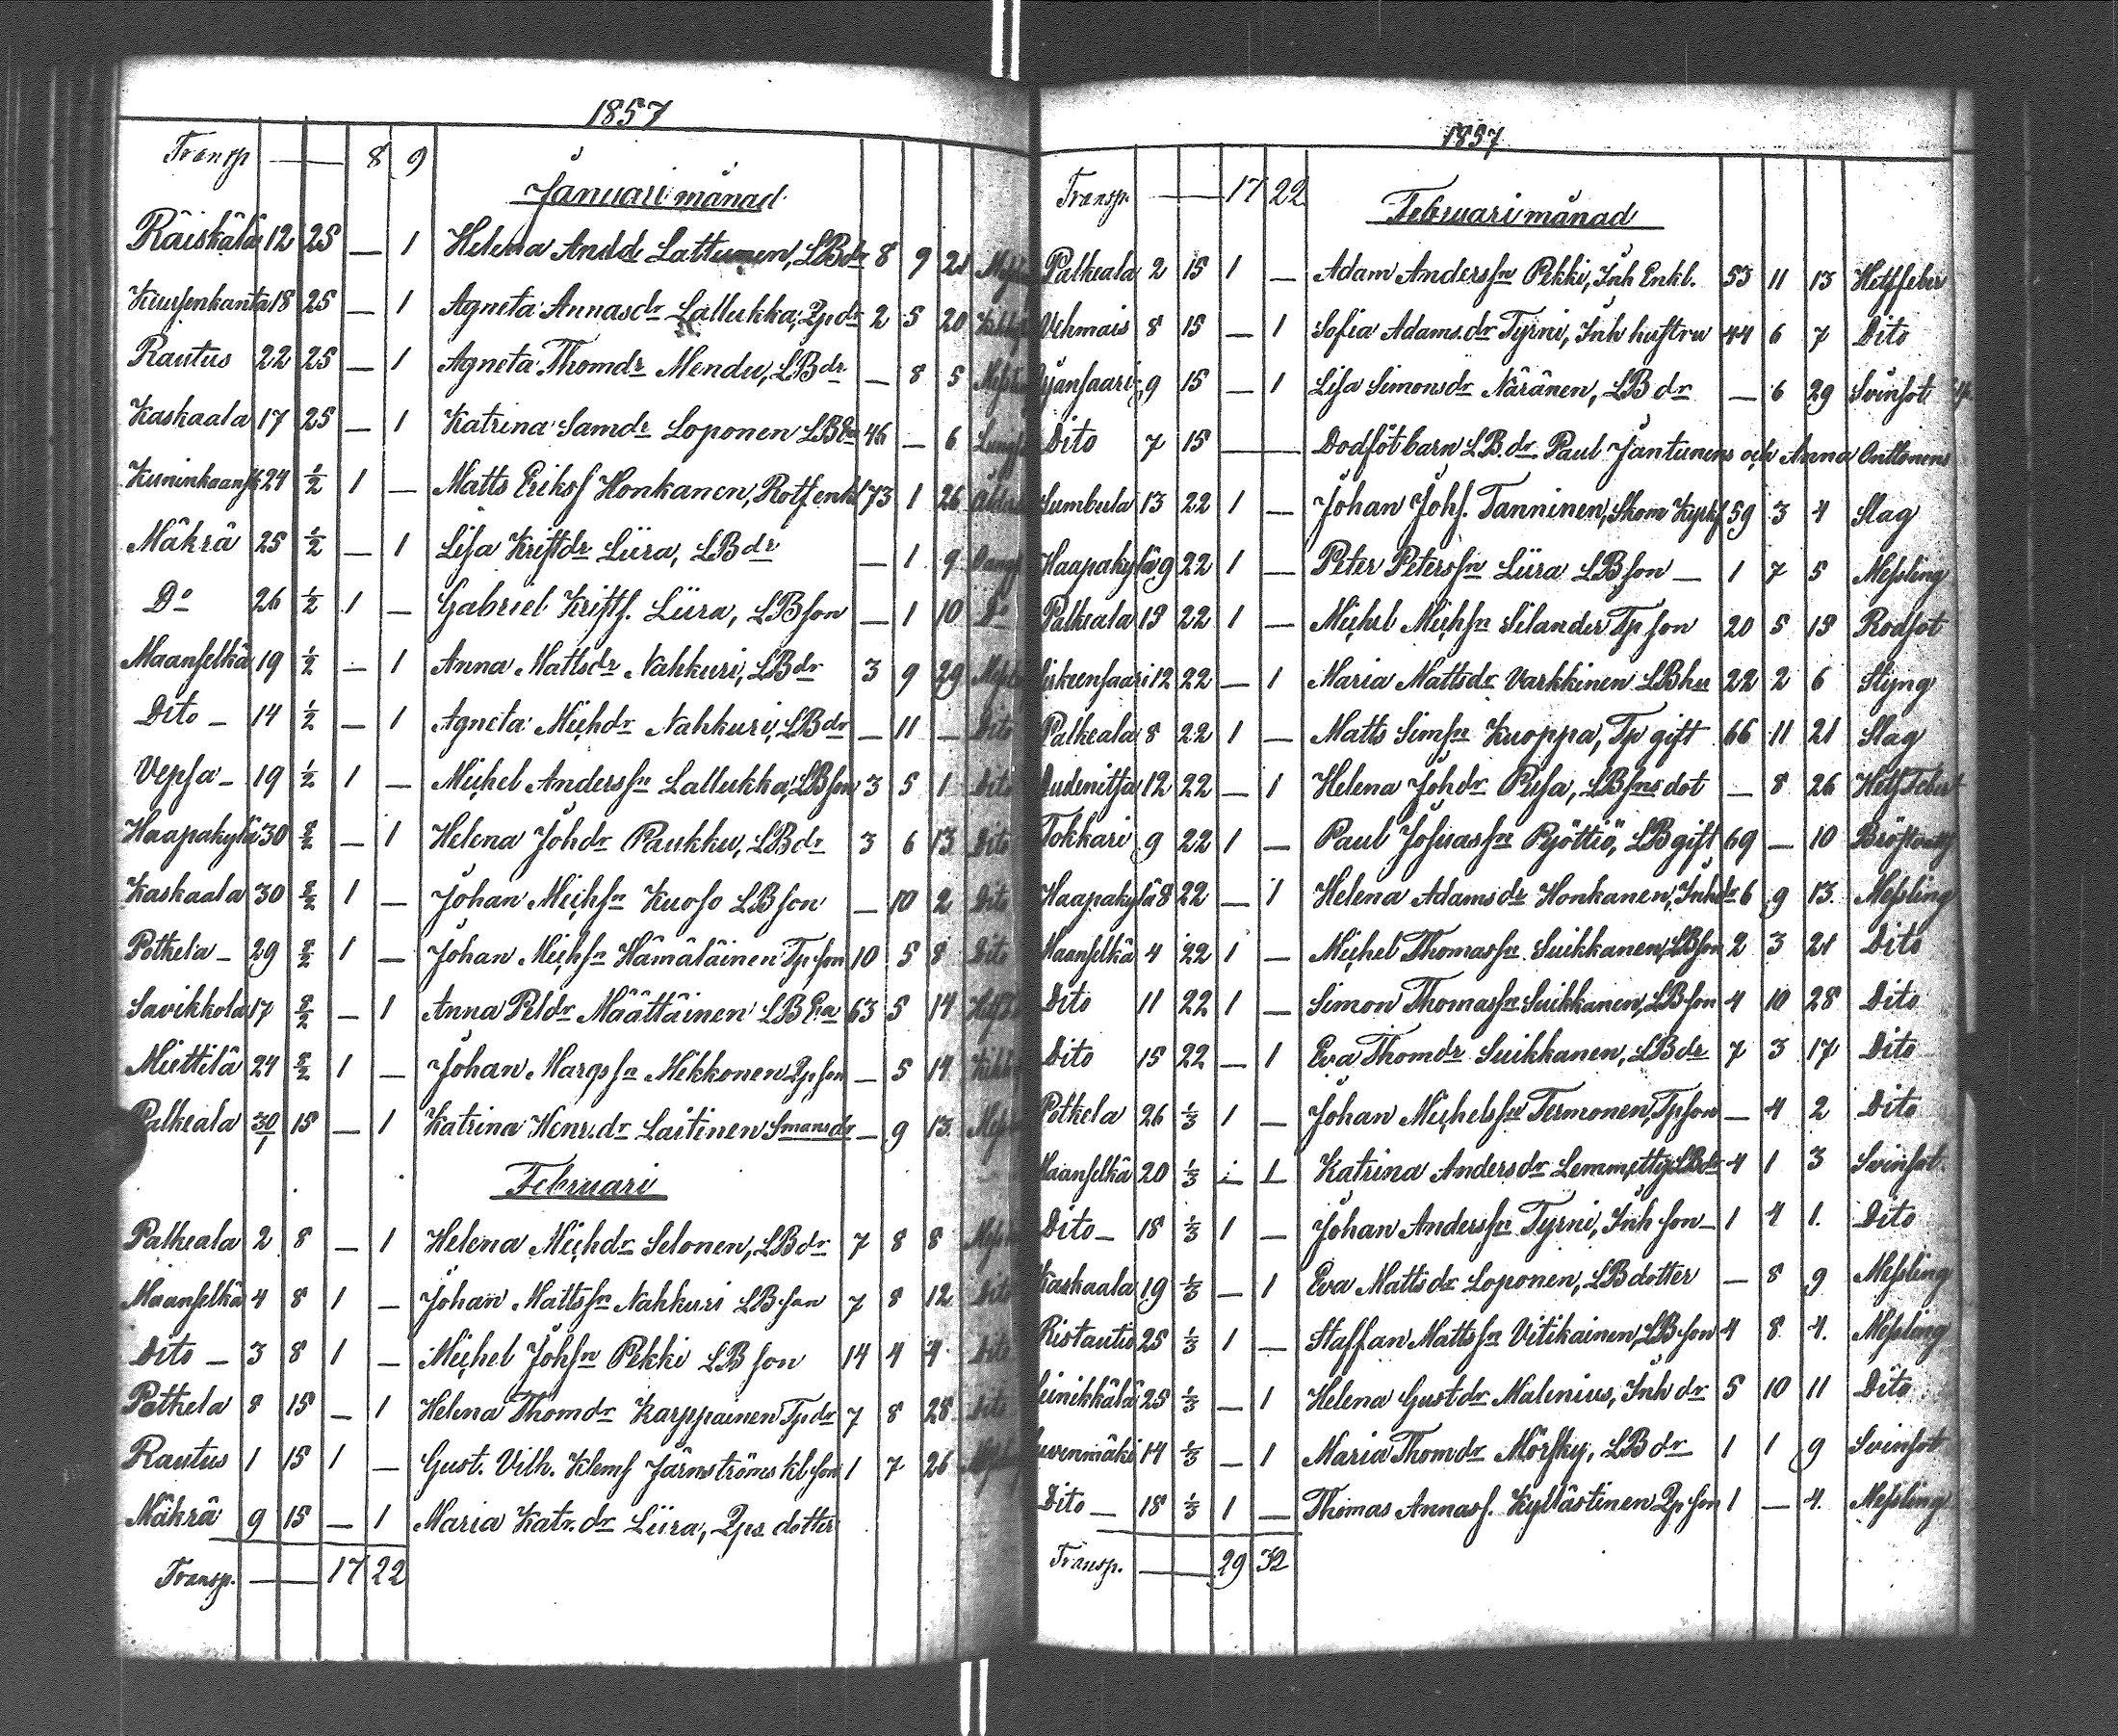 1857
Transp — 8 9
Januari månad
Räiskälä 12 25 — 1 Helena Andd Lattunen, LBdr 8 9 21
Kiursenkanta 18 25 — 1 Agneta Annasdr Lallukka, Ipdr 2 5 20
Rautus 22 25 — 1 Agneta Thomdr Mendu, LBdr — 8 5
Kaskaala 17 25 — 1 Katrina Samdr Loponen LBEa 46 — 6
24 1/2 1 — Matts Eriksf Honkanen, Rotf enkl 73 1 26
Mäkrä 25 1/2 — 1 Lisa Kristdr Liira, LBdr — 1 9
Do 26 1/2 1 — Gabriel Kristf. Liira, LBson — 1 10 Do
Maanselkä 19 1/2 — 1 Anna Mattsdr Nahkuri, LBdr 3 9 29
Dito — 14 1/2 — 1 Agneta Michdr Nahkuri, LBdr — 11 — Dito
Vepsa — 19 1/2 1 — Michel Anderssn Lallukka, LBson 3 5 1 Dito
Haapakylä 30 8/2 — 1 Helena Johdr Paukku, LBdr 3 6 13 Dito
Kaskaala 30 8/2 1 — Johan Michsn Kuoso LBson — 10 2 Dito
Potkela — 29 8/2 1 — Johan Michsn Hämäläinen Tpson 10 5 8 Dito
Savikkola 17 8/2 — 1 Anna Petdr Määttäinen LBEa 63 5 14
Miettilä 24 8/2 1 — Johan Margssn Mikkonen Ipson — 5 14
Palkeala 30/1 15 — 1 Katrina Henr.dr Laitinen Smansdr — 9 13
Februari
Palkeala 2 8 — 1 Helena Michdr Selonen, LBdr 7 8 8
Maanselkä 4 8 1 — Johan Mattssn Nahkuri LBson 7 8 12 Dito
Dito — 3 8 1 — Michel Johsn Pekki LBson 14 4 4 Dito
Potkela 8 15 — 1 Helena Thomdr Karppainen Tpdr 7 8 28 Dito
Rautus 1 15 1 — Gust. Vilh. Klemf Järnströms kl son 1 7 26
Mäkrä 9 15 — 1 Maria Katr.dr Liira, Ips dotter
Transp. — 17 22
1857
Transp. — 17 22
Februari månad
Palkeala 2 15 1 — Adam Anderssn Pekki, Inh Enkl. 53 11 13 Hetsfeber
Vehmais 8 15 — 1 Sofia Adams.dr Tyrni, Inh hustru 44 6 7 Dito
9 15 — 1 Lisa Simonsdr Näränen, LBdr — 6 29 Svinsot
Dito 7 15 — Dödföt barn LB.dr Paul Jantunens och Anna Onttonens
Sumbula 13 22 1 — Johan Johf. Tanninen, Skom 59 3 4 Slag
Haapakylä 9 22 1 — Peter Peterssn Liira LBson — 1 7 5 Messling
Palkeala 19 22 1 — Michel Michsn Silander Tpson 20 5 15 Rödsot
12 22 — 1 Maria Mattsdr Varkkinen LBhu 22 2 6 Styng
Palkeala 8 22 1 — Matts Simsn Kuoppa, Tp gift 66 11 21 Slag
12 22 — 1 Helena Johdr Pusa, LBsns dot — 8 26 Hets Feber
Tokkari 9 22 1 — Paul Josuassn Pyöttiö, LBgift 69 — 10
Haapakylä 8 22 — 1 Helena Adamsdr Honkanen, Inhdr 6 9 13. Messling
Maanselkä 4 22 1 — Michel Thomassn Suikkanen, LBson 2 3 21 Dito
Dito 11 22 1 — Simon Thomassn Suikkanen, LBson 4 10 28 Dito
Dito 15 22 — 1 Eva Thomdr Suikkanen, LBdr 7 3 17 Dito
Potkela 26 1/3 1 — Johan Michelssn Termonen, Tpson — 4 2 Dito
Maanselkä 20 1/3 — 1 Katrina Andersdr Lemmetty LBdr 4 1 3 Svinsot
Dito — 18 1/3 1 — Johan Anderssn Tyrni, Inh son — 1 4 1. Dito
Kaskaala 19 1/3 — 1 Eva Mattsdr Loponen, LBdotter — 8 9 Messling
Ristautio 25 1/3 1 — Staffan Mattssn Vitikainen, LBson 4 8 4. Messling
25 1/3 — 1 Helena Gustdr Malenius, Inh dr 5 10 11 Dito
14 1/3 — 1 Maria Thomdr Mörsky, LBdr 1 1 9 Svinsot
Dito — 18 1/3 1 — Thomas Annasf. Kyllästinen Ipson 1 — 4. Messling
Transp. — 29 32